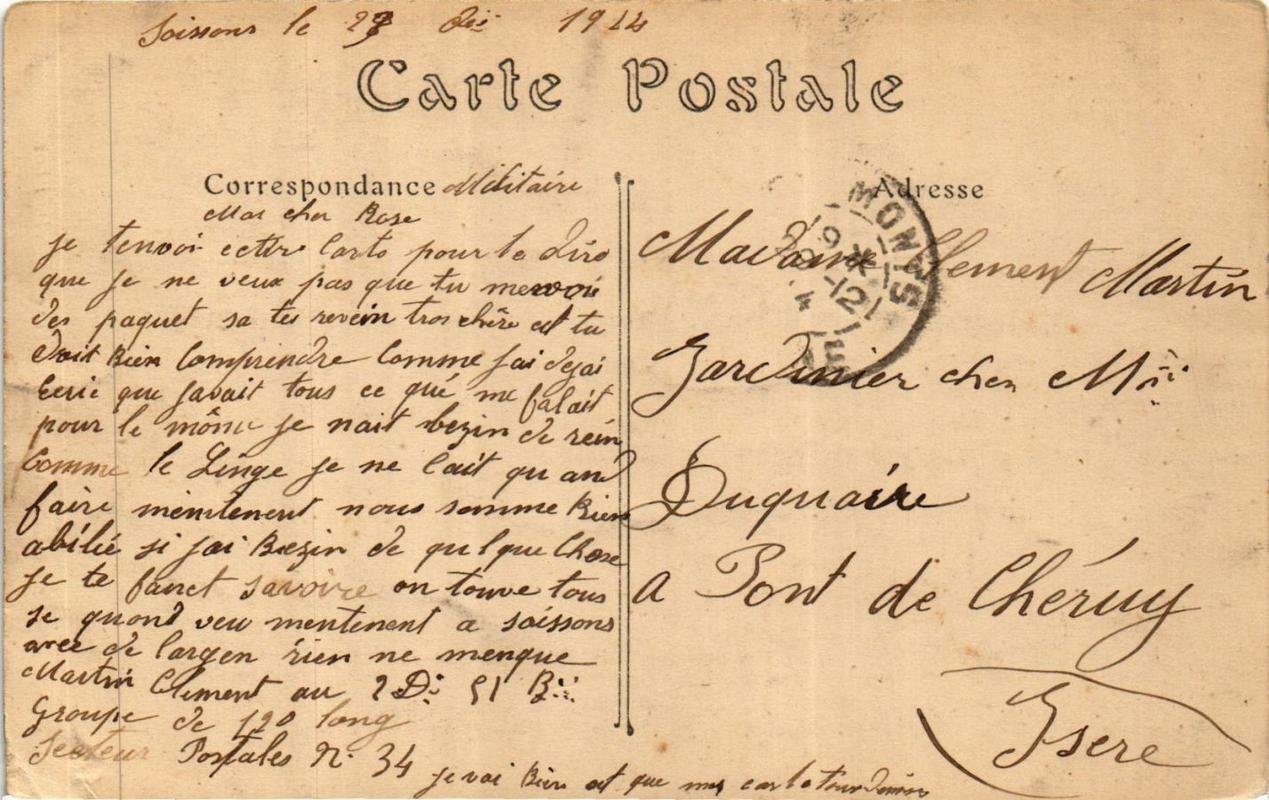 Soissons le 27 Dé 1914
Carte Postale
Correspondance Militaire
Adresse
Ma cher Rose
je tenvoi cette Carte pour te Dire
que je ne veux pas que tu menvoi
des paquet sa tes revein tros chère et tu
Doit Bien Comprendre Comme jai dejai
Ecrie que javait tous ce qué me falait
pour le môme je nait bezin de réin
Comme le Linge je ne lait qu
faire méntenent nous somme Bien
abilié si jai Bezin de quelque Chose
je te faret savoire on touve tous
se quond veu mentenent a soissons
avec de largen rien ne menque
Martin Clement au 2 D. 51 B
Groupe de 120 long
Secteur Postales N. 34
je vai Bien et que ma carte
Madame Clement Martin
Jardinier chen Mr
Duquaire
a Pont de Chéruy
Isere
MONTS
9 *
29 -12
14